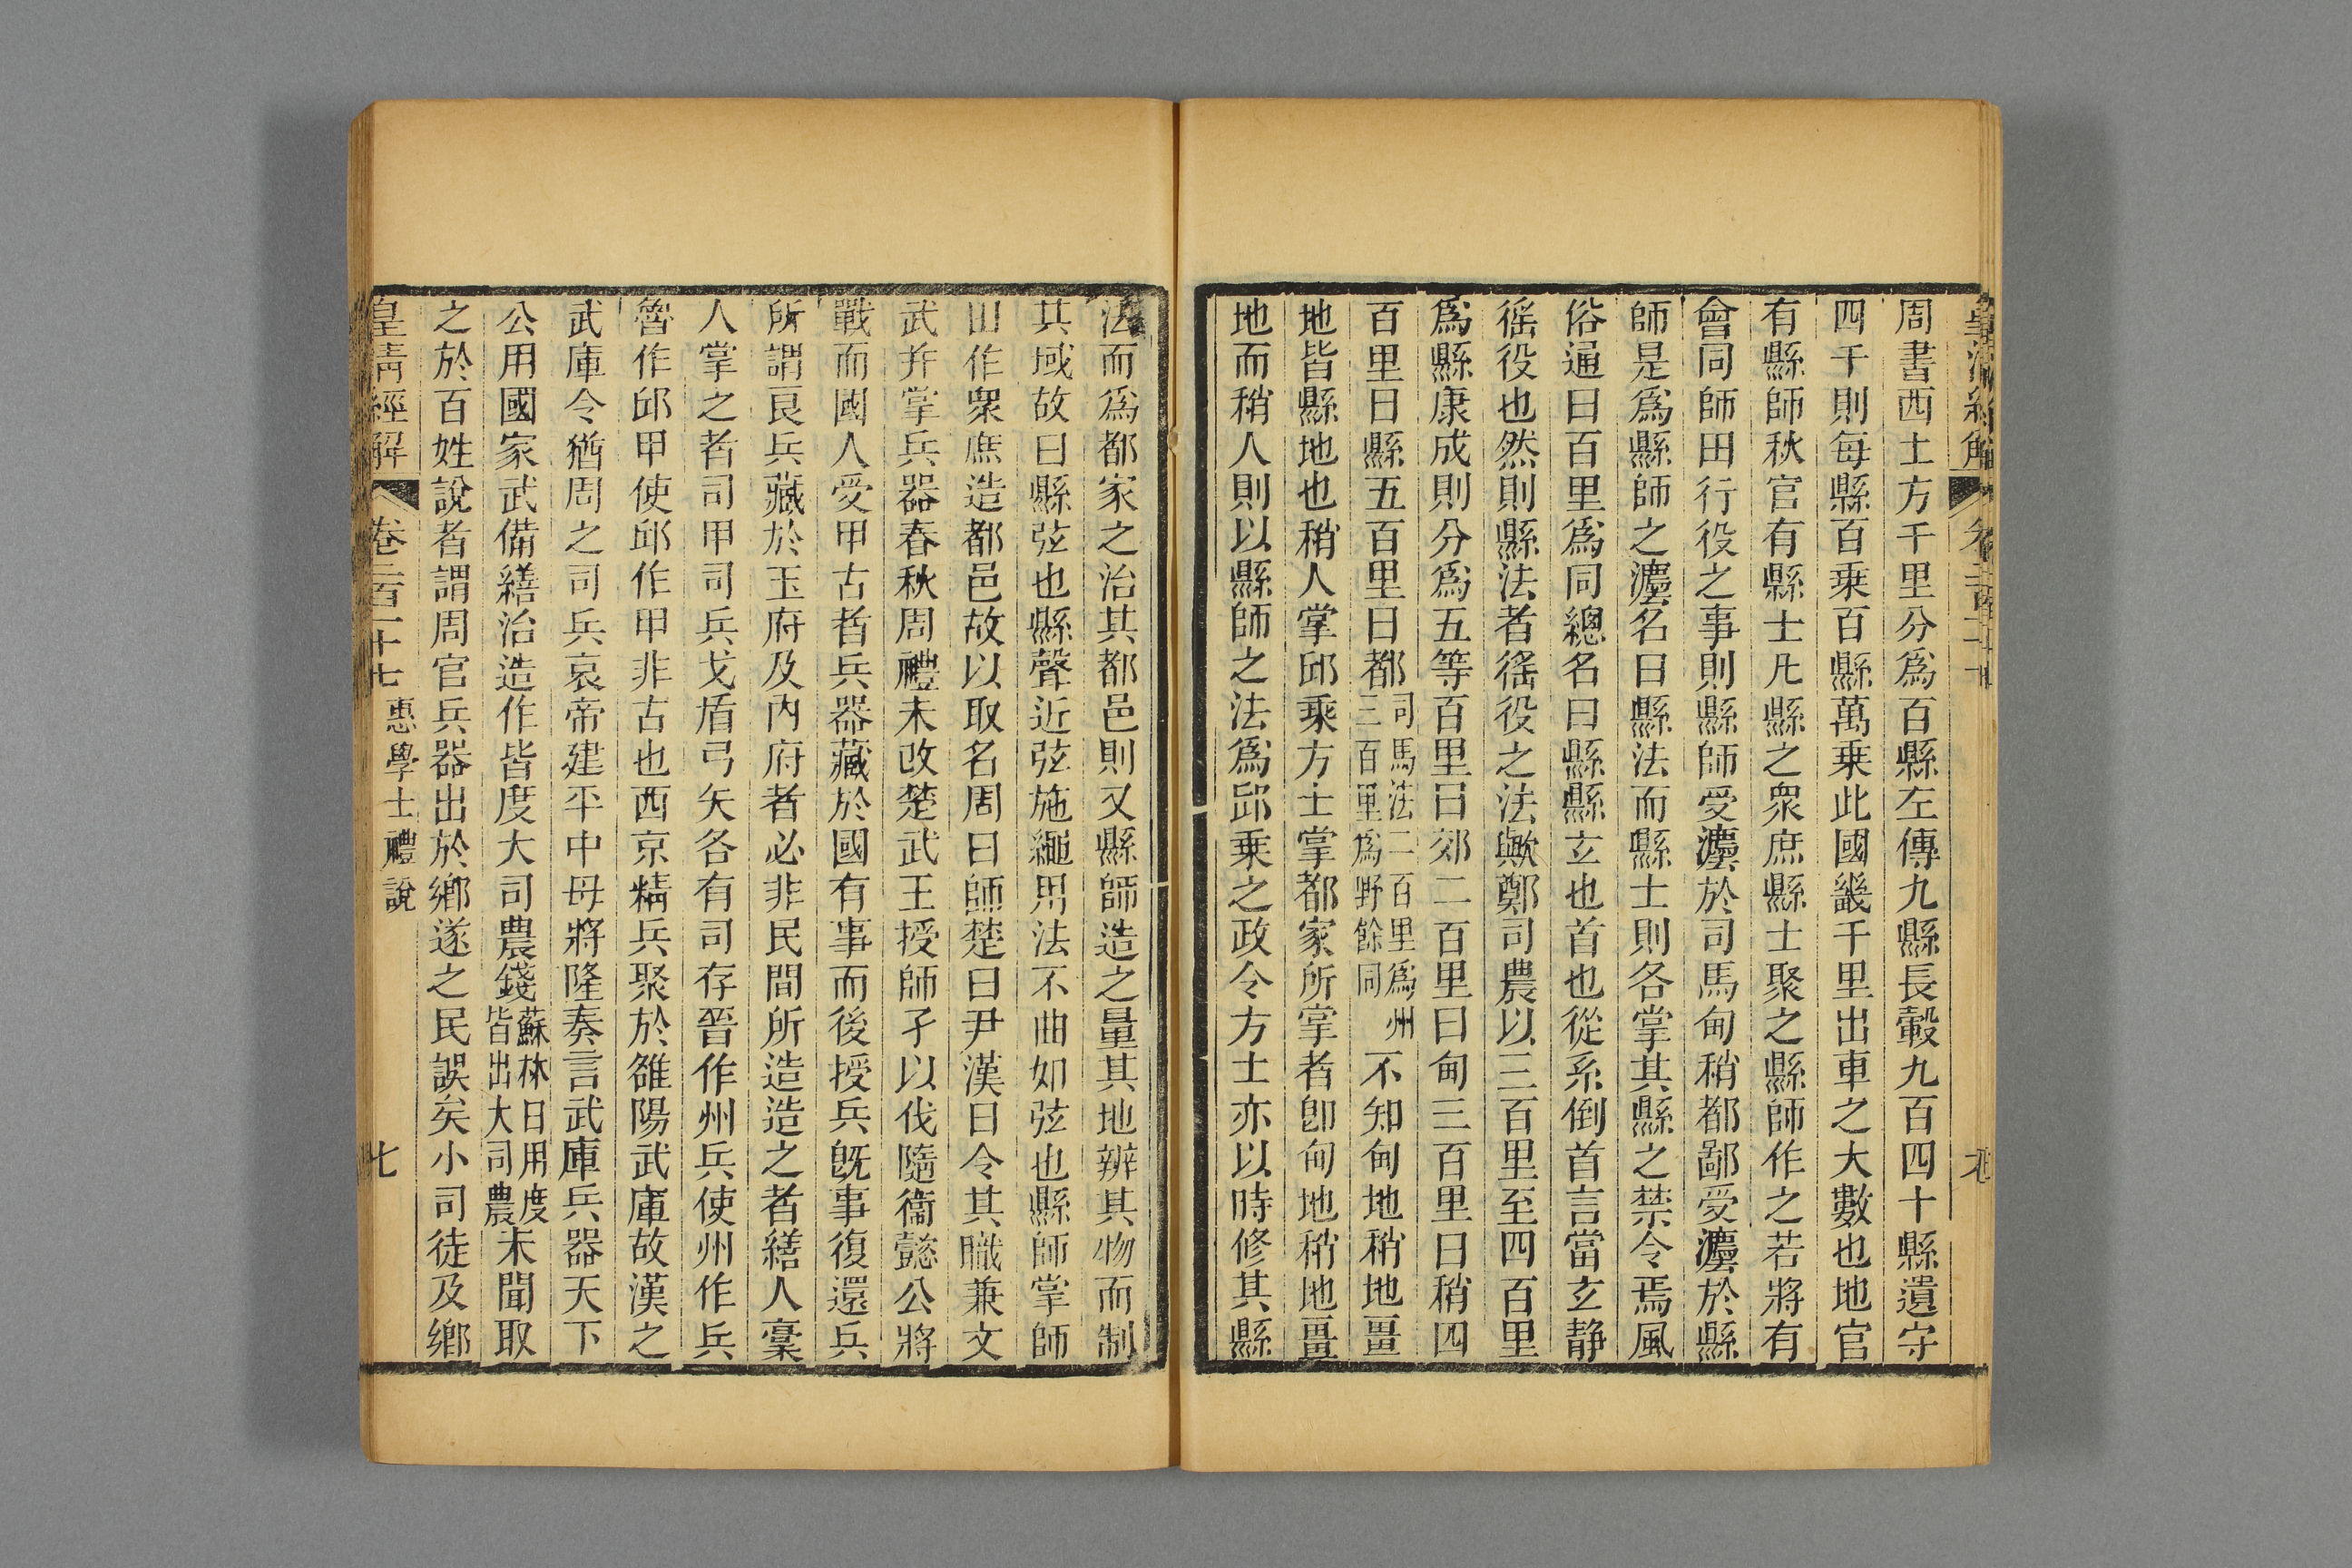 周書西土方千里分爲百縣左傳九縣長轂九百四十縣遺守
四千則每縣百乘百縣萬乘此國畿千里出車之大數也地官
有縣師秋官有縣士凡縣之眾庶縣士聚之縣師作之若將有
會同師田行役之事則縣師受灋於司馬甸稍都鄙受灋於縣
師是爲縣師之灋名曰縣法而縣士則各掌其縣之禁令焉風
俗通曰百里爲同總名曰縣縣玄也首也從系倒首言當玄静
徭役也然則縣法者徭役之法歟鄭司農以三百里至四百里
爲縣康成則分爲五等百里曰郊二百里曰甸三百里曰稍四
百里曰縣五百里曰都司馬法二百里爲州三百里爲野餘同不知甸地稍地畺
地皆縣地也稍人掌邱乘方士掌都家所掌者卽甸地稍地畺
地而稍人則以縣師之法爲邱乘之政令方士亦以時修其縣
法而爲都家之治其都邑則又縣師造之量其地辨其物而制
其域故曰縣弦也縣聲近弦施繩用法不曲如弦也縣師掌師
田作眾庶造都邑故以取名周曰師楚曰尹漢曰令其職兼文
武并掌兵器春秋周禮未改楚武王授師孑以伐隨衞懿公將
戰而國人受甲古者兵器藏於國有事而後授兵旣事復還兵
所謂良兵藏於玉府及內府者必非民間所造造之者繕人稾
人掌之者司甲司兵戈盾弓矢各有司存晉作州兵使州作兵
魯作邱甲使邱作甲非古也西京精兵聚於雒陽武庫故漢之
武庫令猶周之司兵哀帝建平中毋將隆奏言武庫兵器天下
公用國家武備繕治造作皆度大司農錢蘇林曰用度皆出大司農未聞取
之於百姓說者謂周官兵器出於鄉遂之民誤矣小司徒及鄉
皇清經解 卷二百十七 惠學士禮說 七